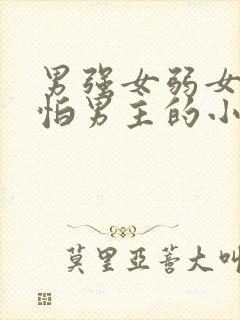 男强女弱女
怕男主的小
莫里亞蒼大叫